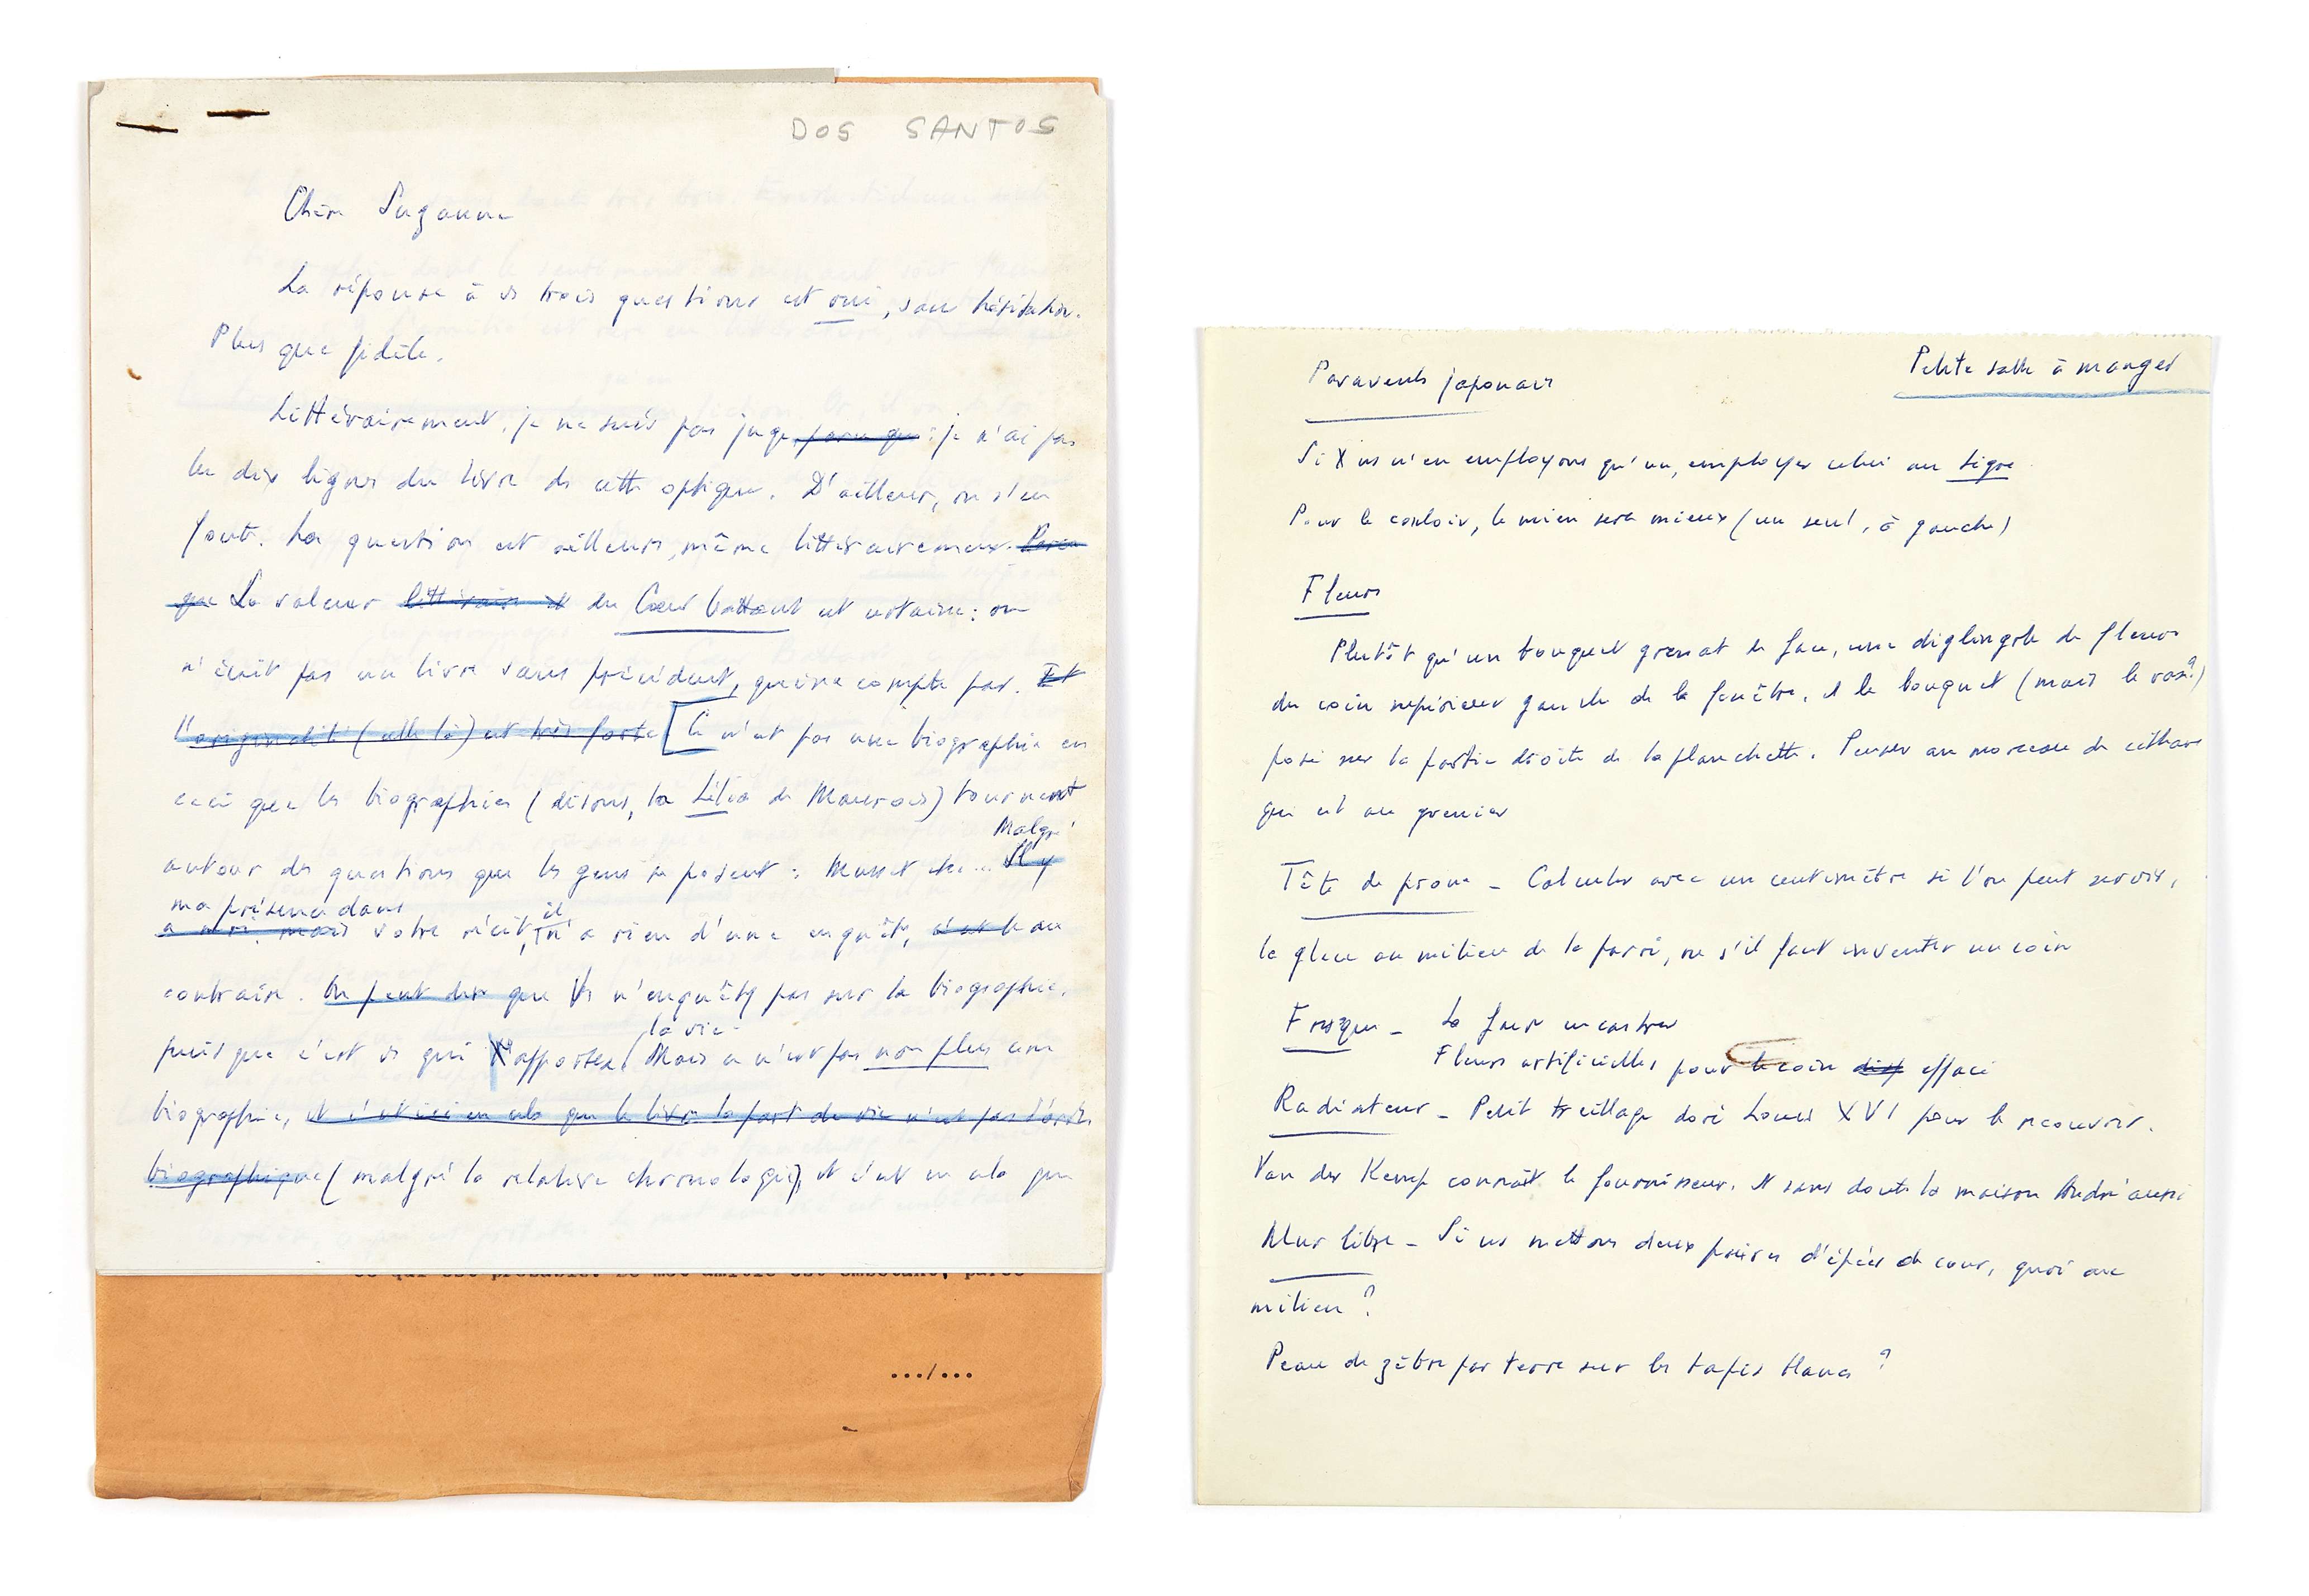 DOS SANTOS
Chère Suzanne
La réponse à vs trois questions est oui, sans hésitation.
Plus que fidèle.
Littérairement, je ne suis pas juge parce que : je n'ai pas
lu dix lignes du livre ds cette optique. D'ailleurs, on s'en
fout. La question est ailleurs, même littérairement. Parce
que La valeur littéraire du Cœur battant est certaine : on
n'écrit pas un livre sans précédent, qui ne compte pas. Et
l'originalité (celle-là) est très forte [Ce n'est pas une biographie en
ceci que les biographies (disons, la Lélia de Maurois) tournent
autour des questions que les gens se posent : Musset etc... Il y
Malgré
ma présence dans
a moi. mais votre récit, il n'a rien d'une enquête, c'est le au
contraire. On peut dire que Vs n'enquêtez pas sur la biographie,
puisque c'est vs qui l'apportez. Mais ce n'est pas non plus une
la vie
biographie, et c'est ici en cela que le livre la part de vie n'est pas d'ordre
biographique (malgré la relative chronologie), et c'est en cela que
ce qui est probable. Le mot amitié est embêtant, parce
.../...
Petite salle à manger
Paravents japonais
Si X ns n'en employons qu'un, employer celui au tigre
Pour le couloir, le mien sera mieux (un seul, à gauche)
Fleurs
Plutôt qu'un bouquet grenat de face, une déglingole de fleurs
du coin supérieur gauche de la fenêtre, et le bouquet (mais le vase?)
posé sur la partie droite de la planchette. Penser au morceau de cithare
qui est au grenier
Tête de proue – Calculer avec un centimètre si l'on peut servir,
la glace au milieu de la paroi, ou s'il faut inventer un coin
Fresque – La faire encastrer
Fleurs artificielles pour le coin effacé
Radiateur – Petit treillage doré Louis XVI pour le recouvrir.
Van der Kemp connaît le fournisseur. Et sans doute la maison André aussi
Mur libre – Si ns mettons deux paires d'épées de cour, quoi au
milieu ?
Peau de zèbre par terre sur les tapis blancs ?